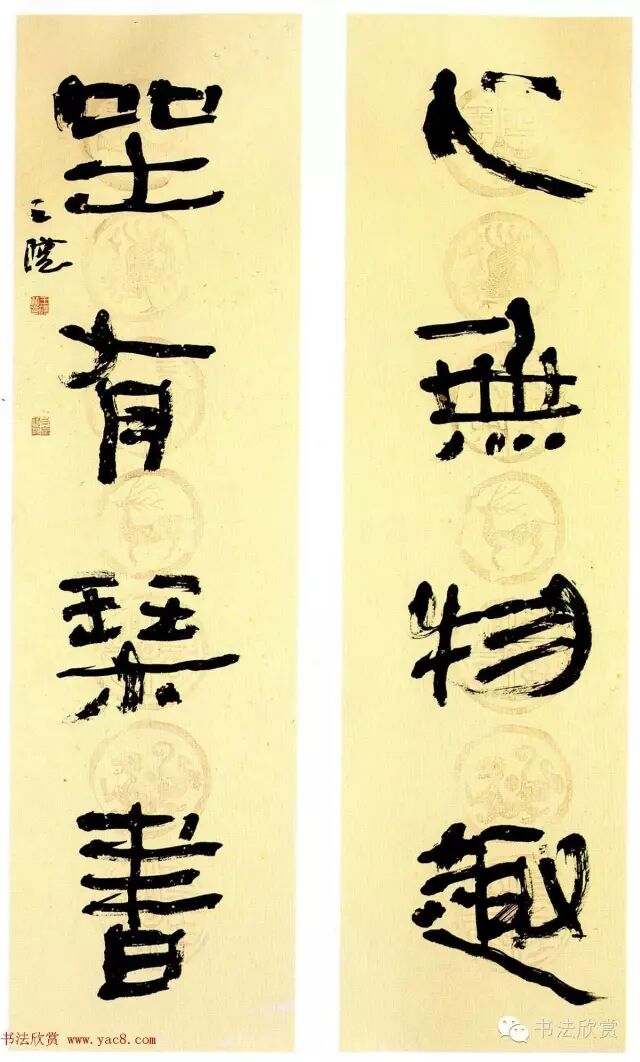 心無物
坐有琹書
王鏞
书法欣赏 www.yac8.com
书法欣赏